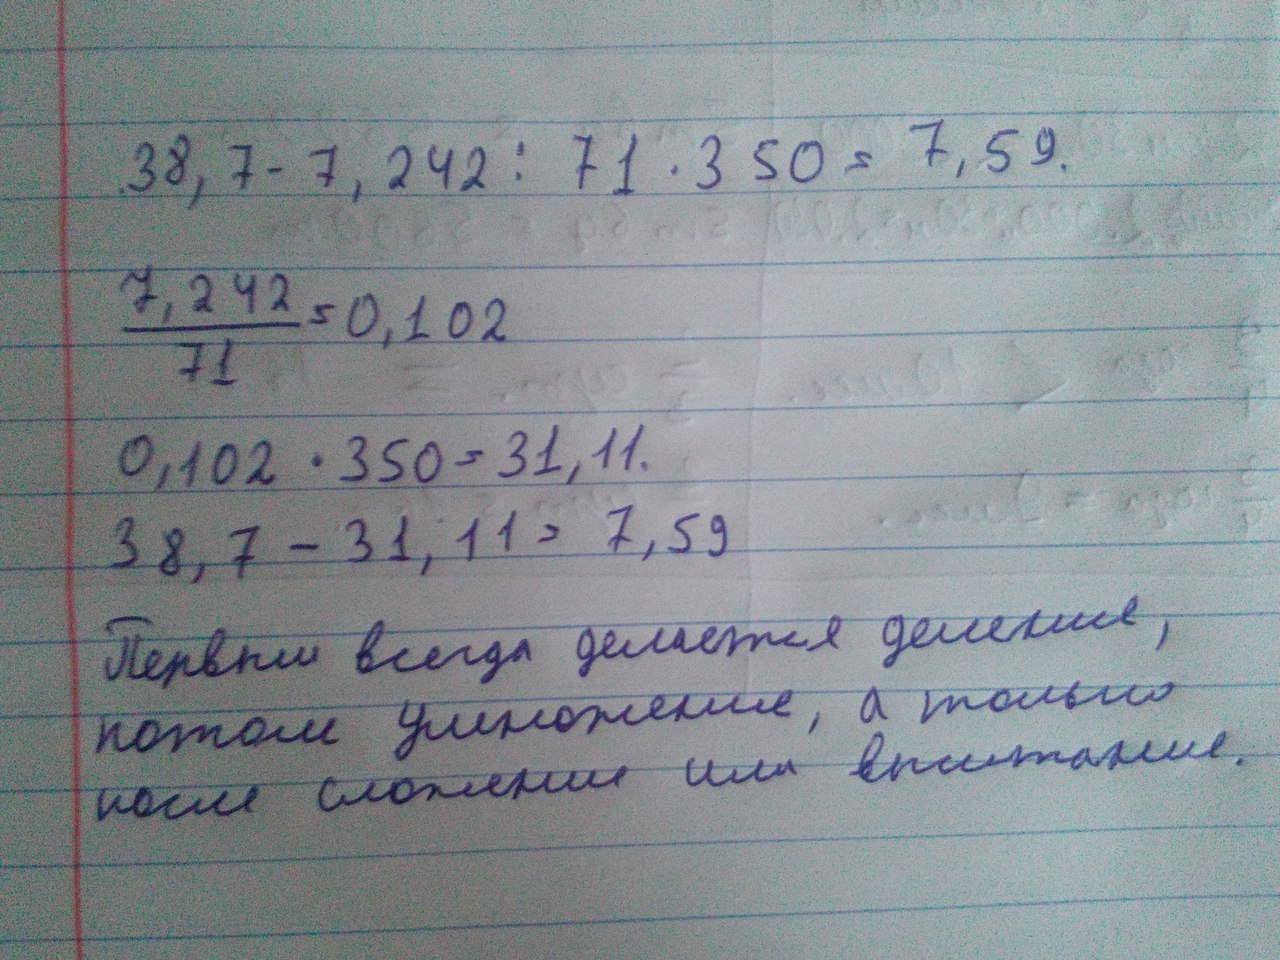 38,7 - 7,242 : 71 · 350 = 7,59.
7,242
71
= 0,102
0,102 · 350 = 31,11.
38,7 - 31,11 = 7,59
Первым всегда делается деление,
потом умножение, а только
после сложение или вычитание.